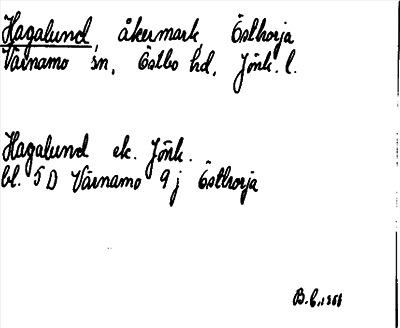 Hagalund, åkermark, Östhorja
Värnamo sn, Östbo hd, Jönk. l.
Hagalund ek. Jönk.
bl. 5 D Värnamo 9 j Östhorja
B.E. 1968